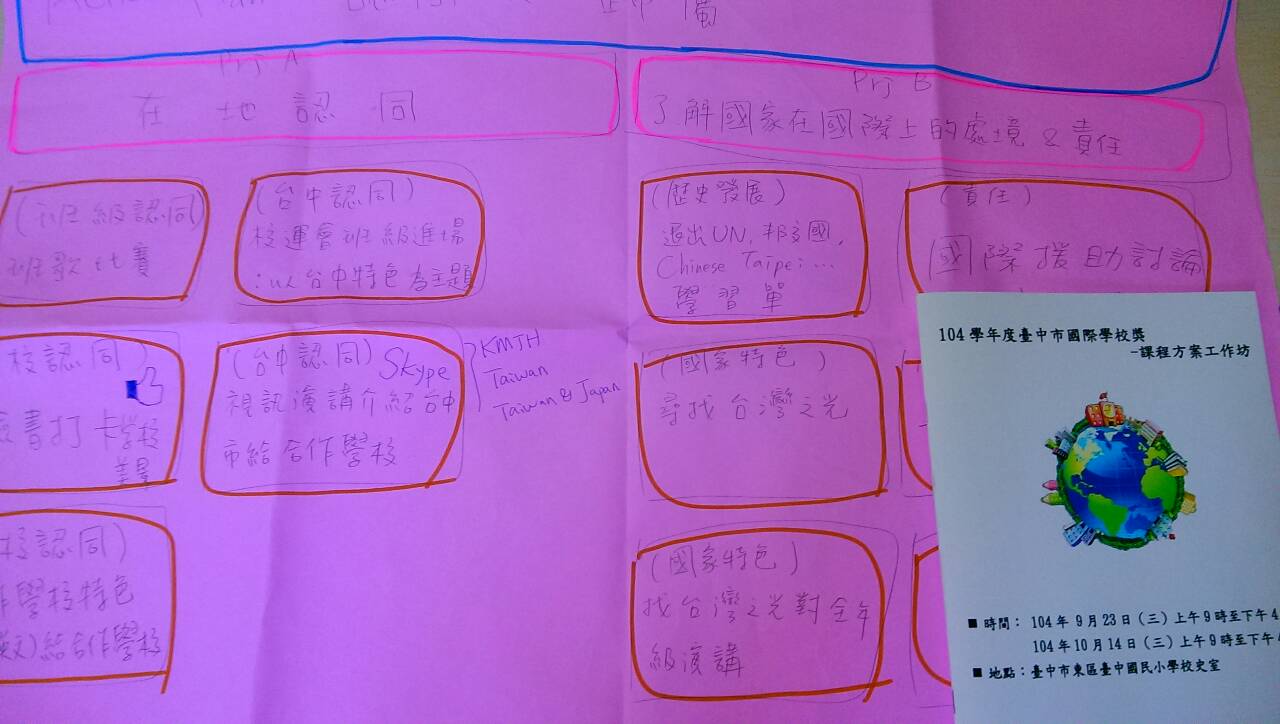 Prj A
在地認同
Prj B
了解國家在國際上的處境 & 責任
(班級認同)
班歌比賽
(台中認同)
校運會班級進場
:以台中特色為主題
(歷史發展)
退出UN, 邦交國,
Chinese Taipei: ...
學習單
(責任)
國際援助討論
校認同)
書打卡學校
美景
(台中認同) Skype
視訊演講介紹台中
市給合作學校
KMJH
Taiwan
Taiwan & Japan
(國家特色)
尋找台灣之光
校認同)
學校特色
英文)給合作學校
(國家特色)
找台灣之光對全年
級演講
104 學年度臺中市國際學校獎
-課程方案工作坊
■ 時間： 104 年 9 月 23 日（三）上午 9 時至下午 4
104 年 10 月 14 日（三）上午 9 時至下午 4
■ 地點：臺中市東區臺中國民小學校史室